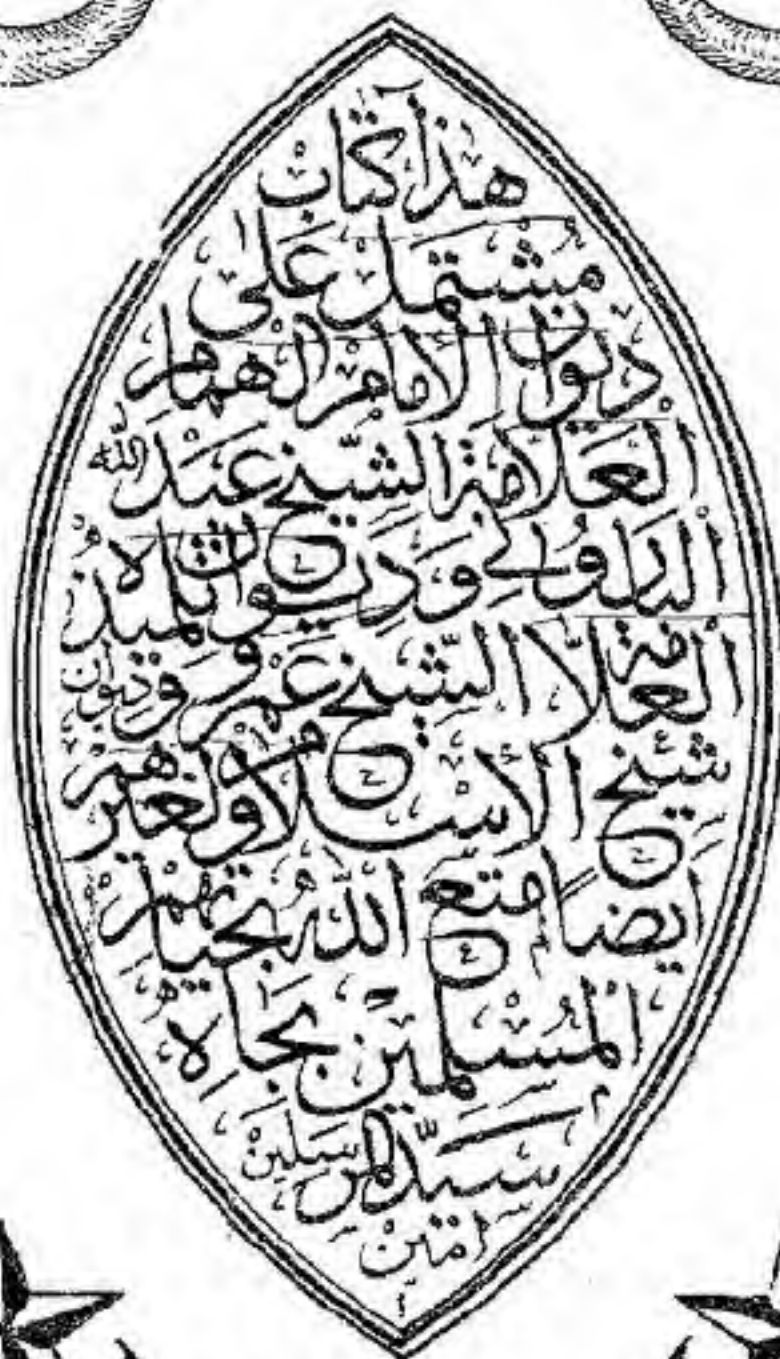 هذا كتاب
مشتمل على
ديوان الامام الهمام
العلامة الشيخ عبد الله
البدلولي وديوان تلميذه
العلامة الشيخ عمر وديوان
شيخ الاسلام ولغيرهم
ايضا متع الله بحياتهم
المسلمين بجاه
سيد المرسلين
امين